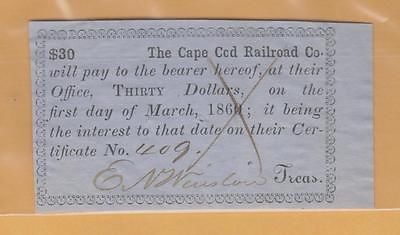 $30 The Cape Cod Railroad Co.
will pay to the bearer hereof, at their
Office, THIRTY Dollars, on the
first day of March, 1860; it being
the interest to that date on their Cer-
tificate No. 409.
E N Winslow Treas.